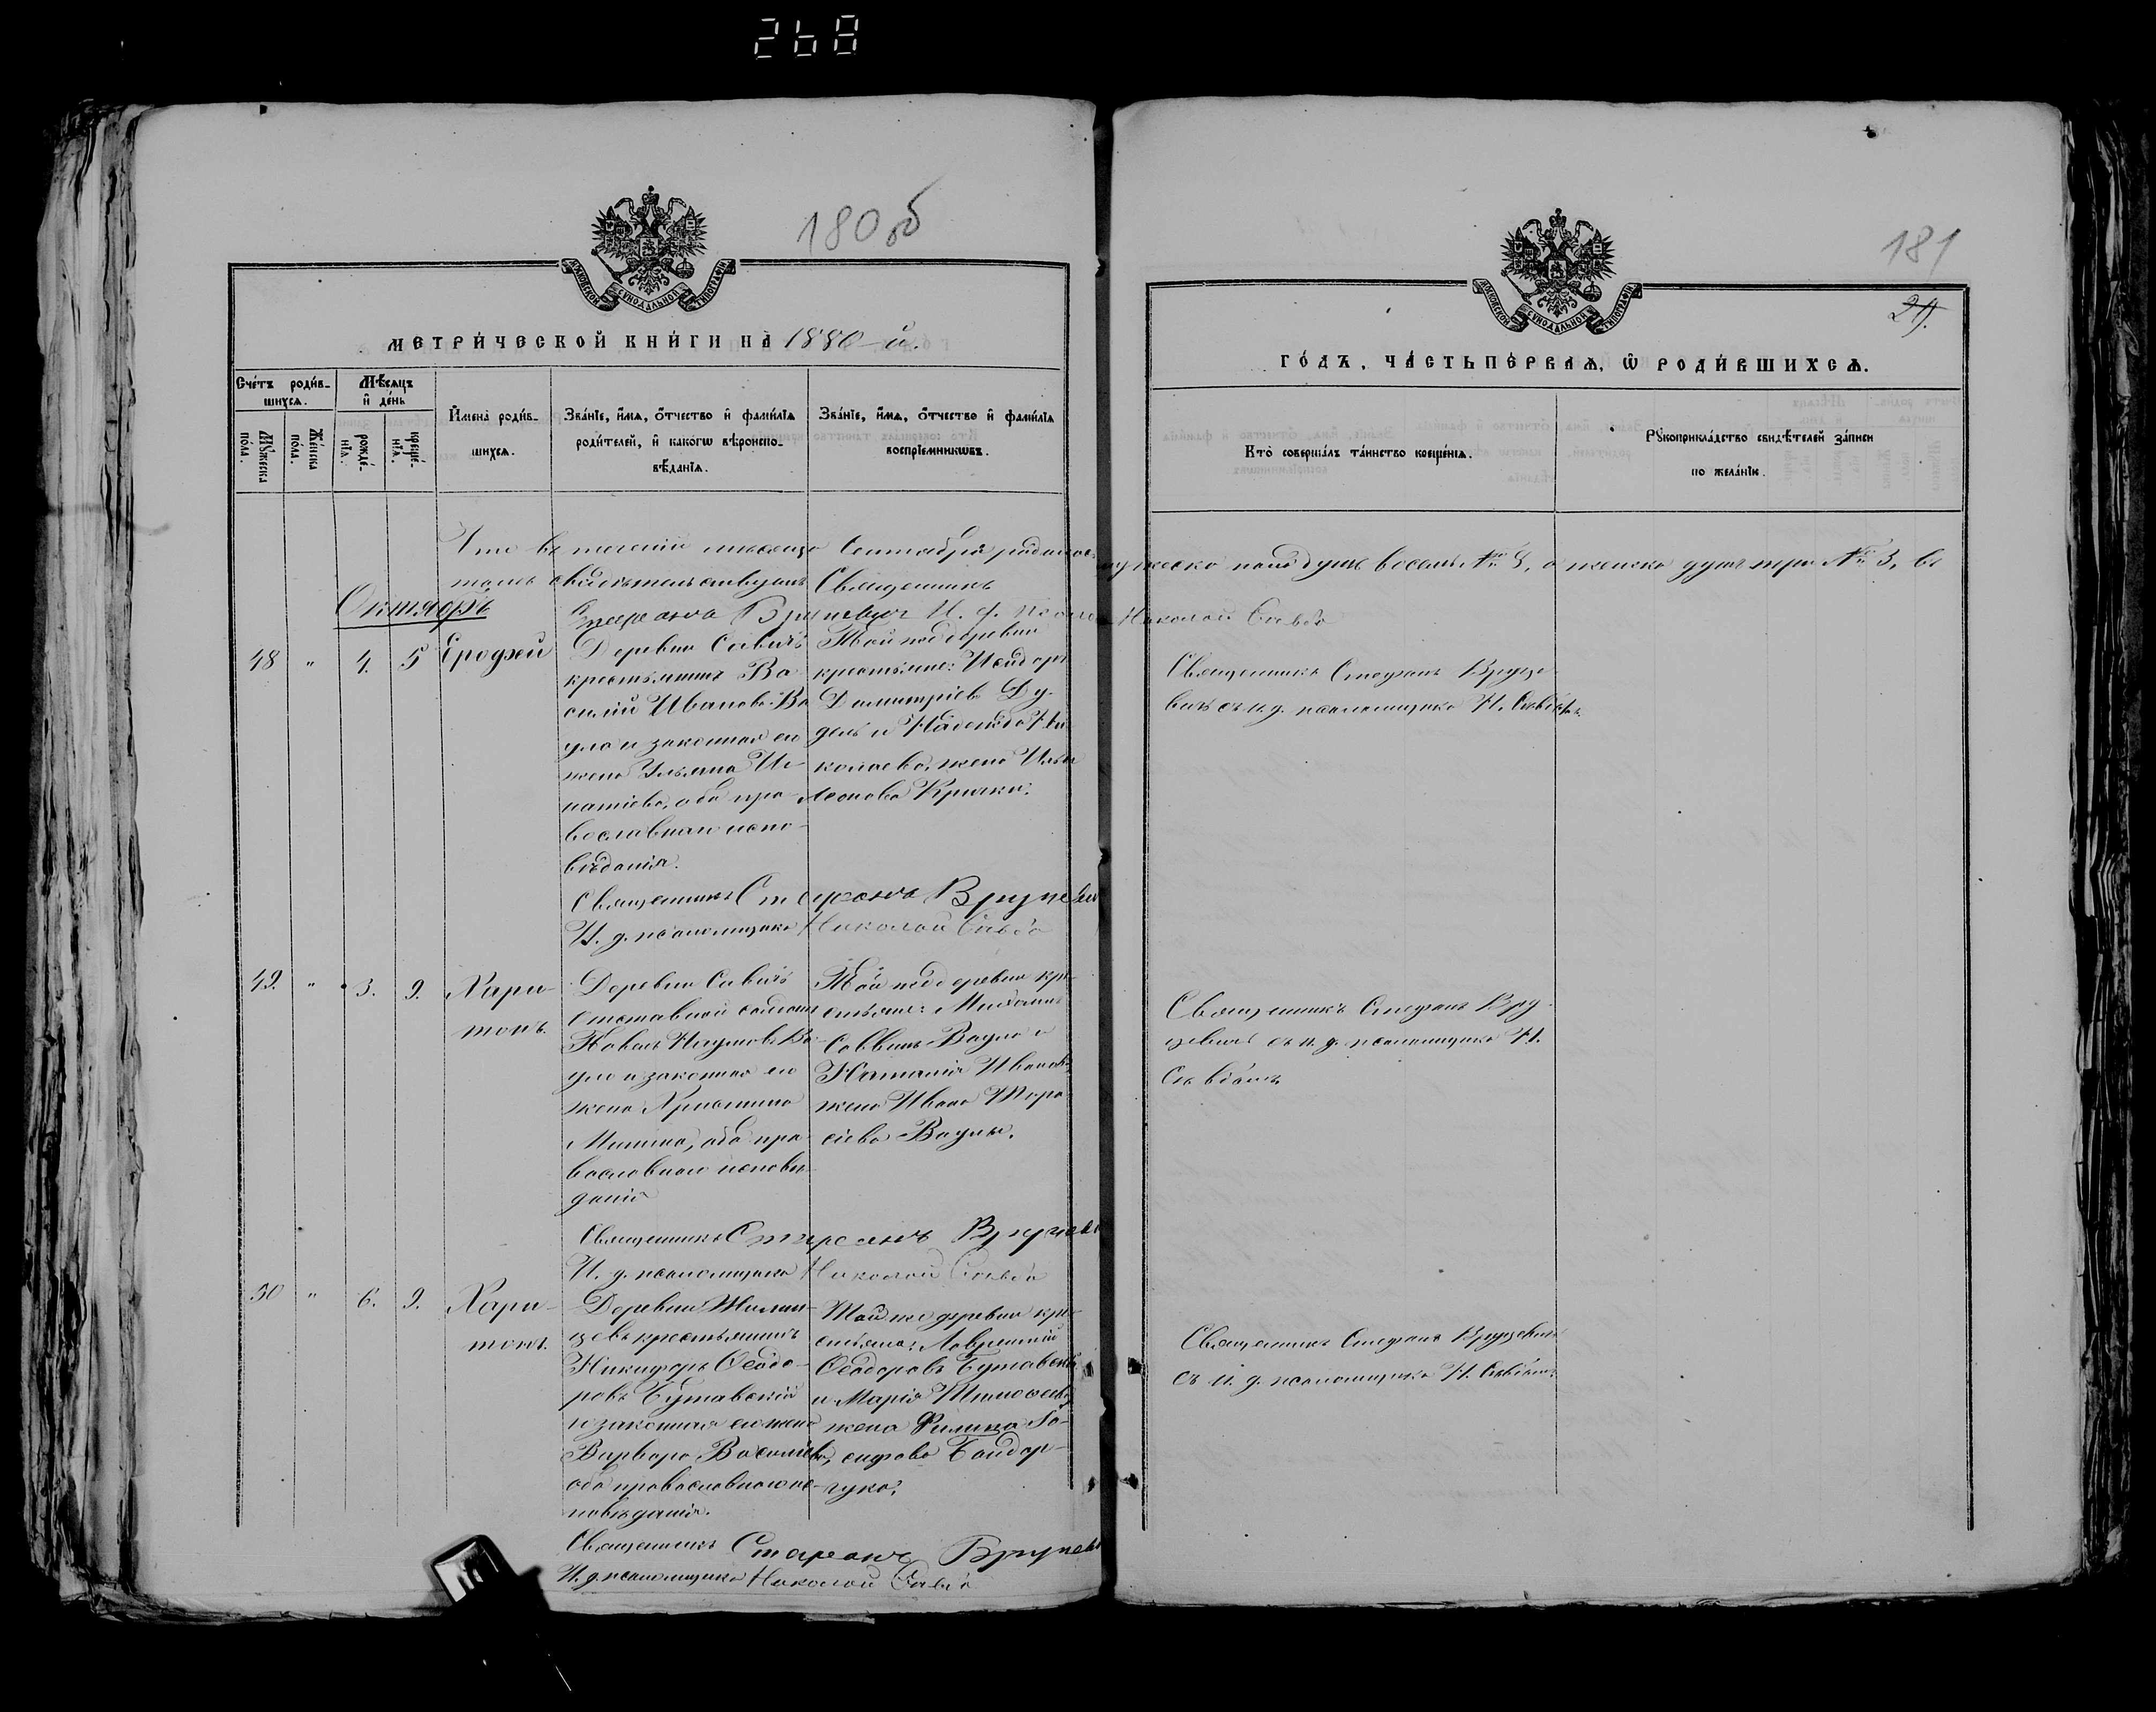 268
180 об
МЕТРИ́ЧЕСКОЙ КНИ́ГИ НА̀ 1880-й.
Сче́тъ роди́в-
шихсѧ.
Мѣ́сѧцъ
и҆ де́нь
Мꙋ́жеска
по́ла.
Же́нска
по́ла.
рожде́-
нїѧ.
креще́-
нїѧ.
И҆мена̀ роди́в-
шихсѧ.
Зва́нїе, и҆́мѧ, ѻ҆́тчество и҆ фами́лїѧ
роди́телей, и҆ како́гѡ вѣроиспо-
вѣ́данїѧ.
Зва́нїе, и҆́мѧ, ѻ҆́тчество и҆ фами́лїѧ
воспрїе́мникѡвъ.
Что въ теченіи мѣсяца Сентября родилось
томъ свидѣтельствуемъ Священникъ
Октябрь
Стефанъ Врублевич И. д. псалом
48 " 4. 5 Ерофей
Деревни Савичъ
крестьянинъ Ва-
силій Ивановъ Ва
ула и законная его
жена Ульяна Иг-
натіева, оба пра-
вославнаго испо-
вѣданія.
Той же деревни
крестьяне: Исидоръ
Димитріевъ Ду-
дель и Надежда Ни
колаева, жена Ильи
Леонова Крычки.
Священникъ Стефанъ
И. д. псаломщика Николай
49. " 3. 9. Хари-
тонъ.
Деревни Савичъ
отставной солдатъ
Наумовъ Ва-
ула и законная его
жена Христина
Минина, оба пра-
вославнаго исповѣ-
данія
Той же деревни кре-
стьяне: Михаилъ
Саввинъ Ваула и
Наталія Иванова,
жена Ивана Тара-
сіева Ваулы.
Священникъ Стефанъ
И. д. псаломщика Николай
50 " 6. 9. Хари-
тонъ.
Деревни Жилин-
цевъ крестьянинъ
Никифоръ Ѳеодо-
ровъ Бутавскій
и законная его жена
Варвара Васильева,
оба православнаго ис-
повѣданія.
Той же деревни кре-
стьяне: Лаврентій
Ѳеодоровъ Бутавскій
и Марія Тимоѳеева,
жена Филипа Іо-
сифова Бондар-
чука.
Священникъ Стефанъ
И. д. псаломщика Николай
181
29.
ДꙊХО́ВСКОЙ СѴНОДА́ЛЬНОЙ ТИПОГРА́ФІИ
ГО́ДЪ, ЧА́СТЬ ПЕ́РВАѦ, Ѽ РОДИ́ВШИХСѦ.
Кто̀ соверша́лъ та́инство креще́нїѧ.
Рꙋкоприкла́дство свидѣ́телей за́писи
по жела́нїю.
мужеска пола душъ восемь № 8, а женска душъ три № 3, въ
Николай
Священникъ Стефанъ
съ и. д. псаломщика Н.
Священникъ Стефанъ
съ и. д. псаломщика Н.
Священникъ Стефанъ
съ и. д. псаломщика Н.